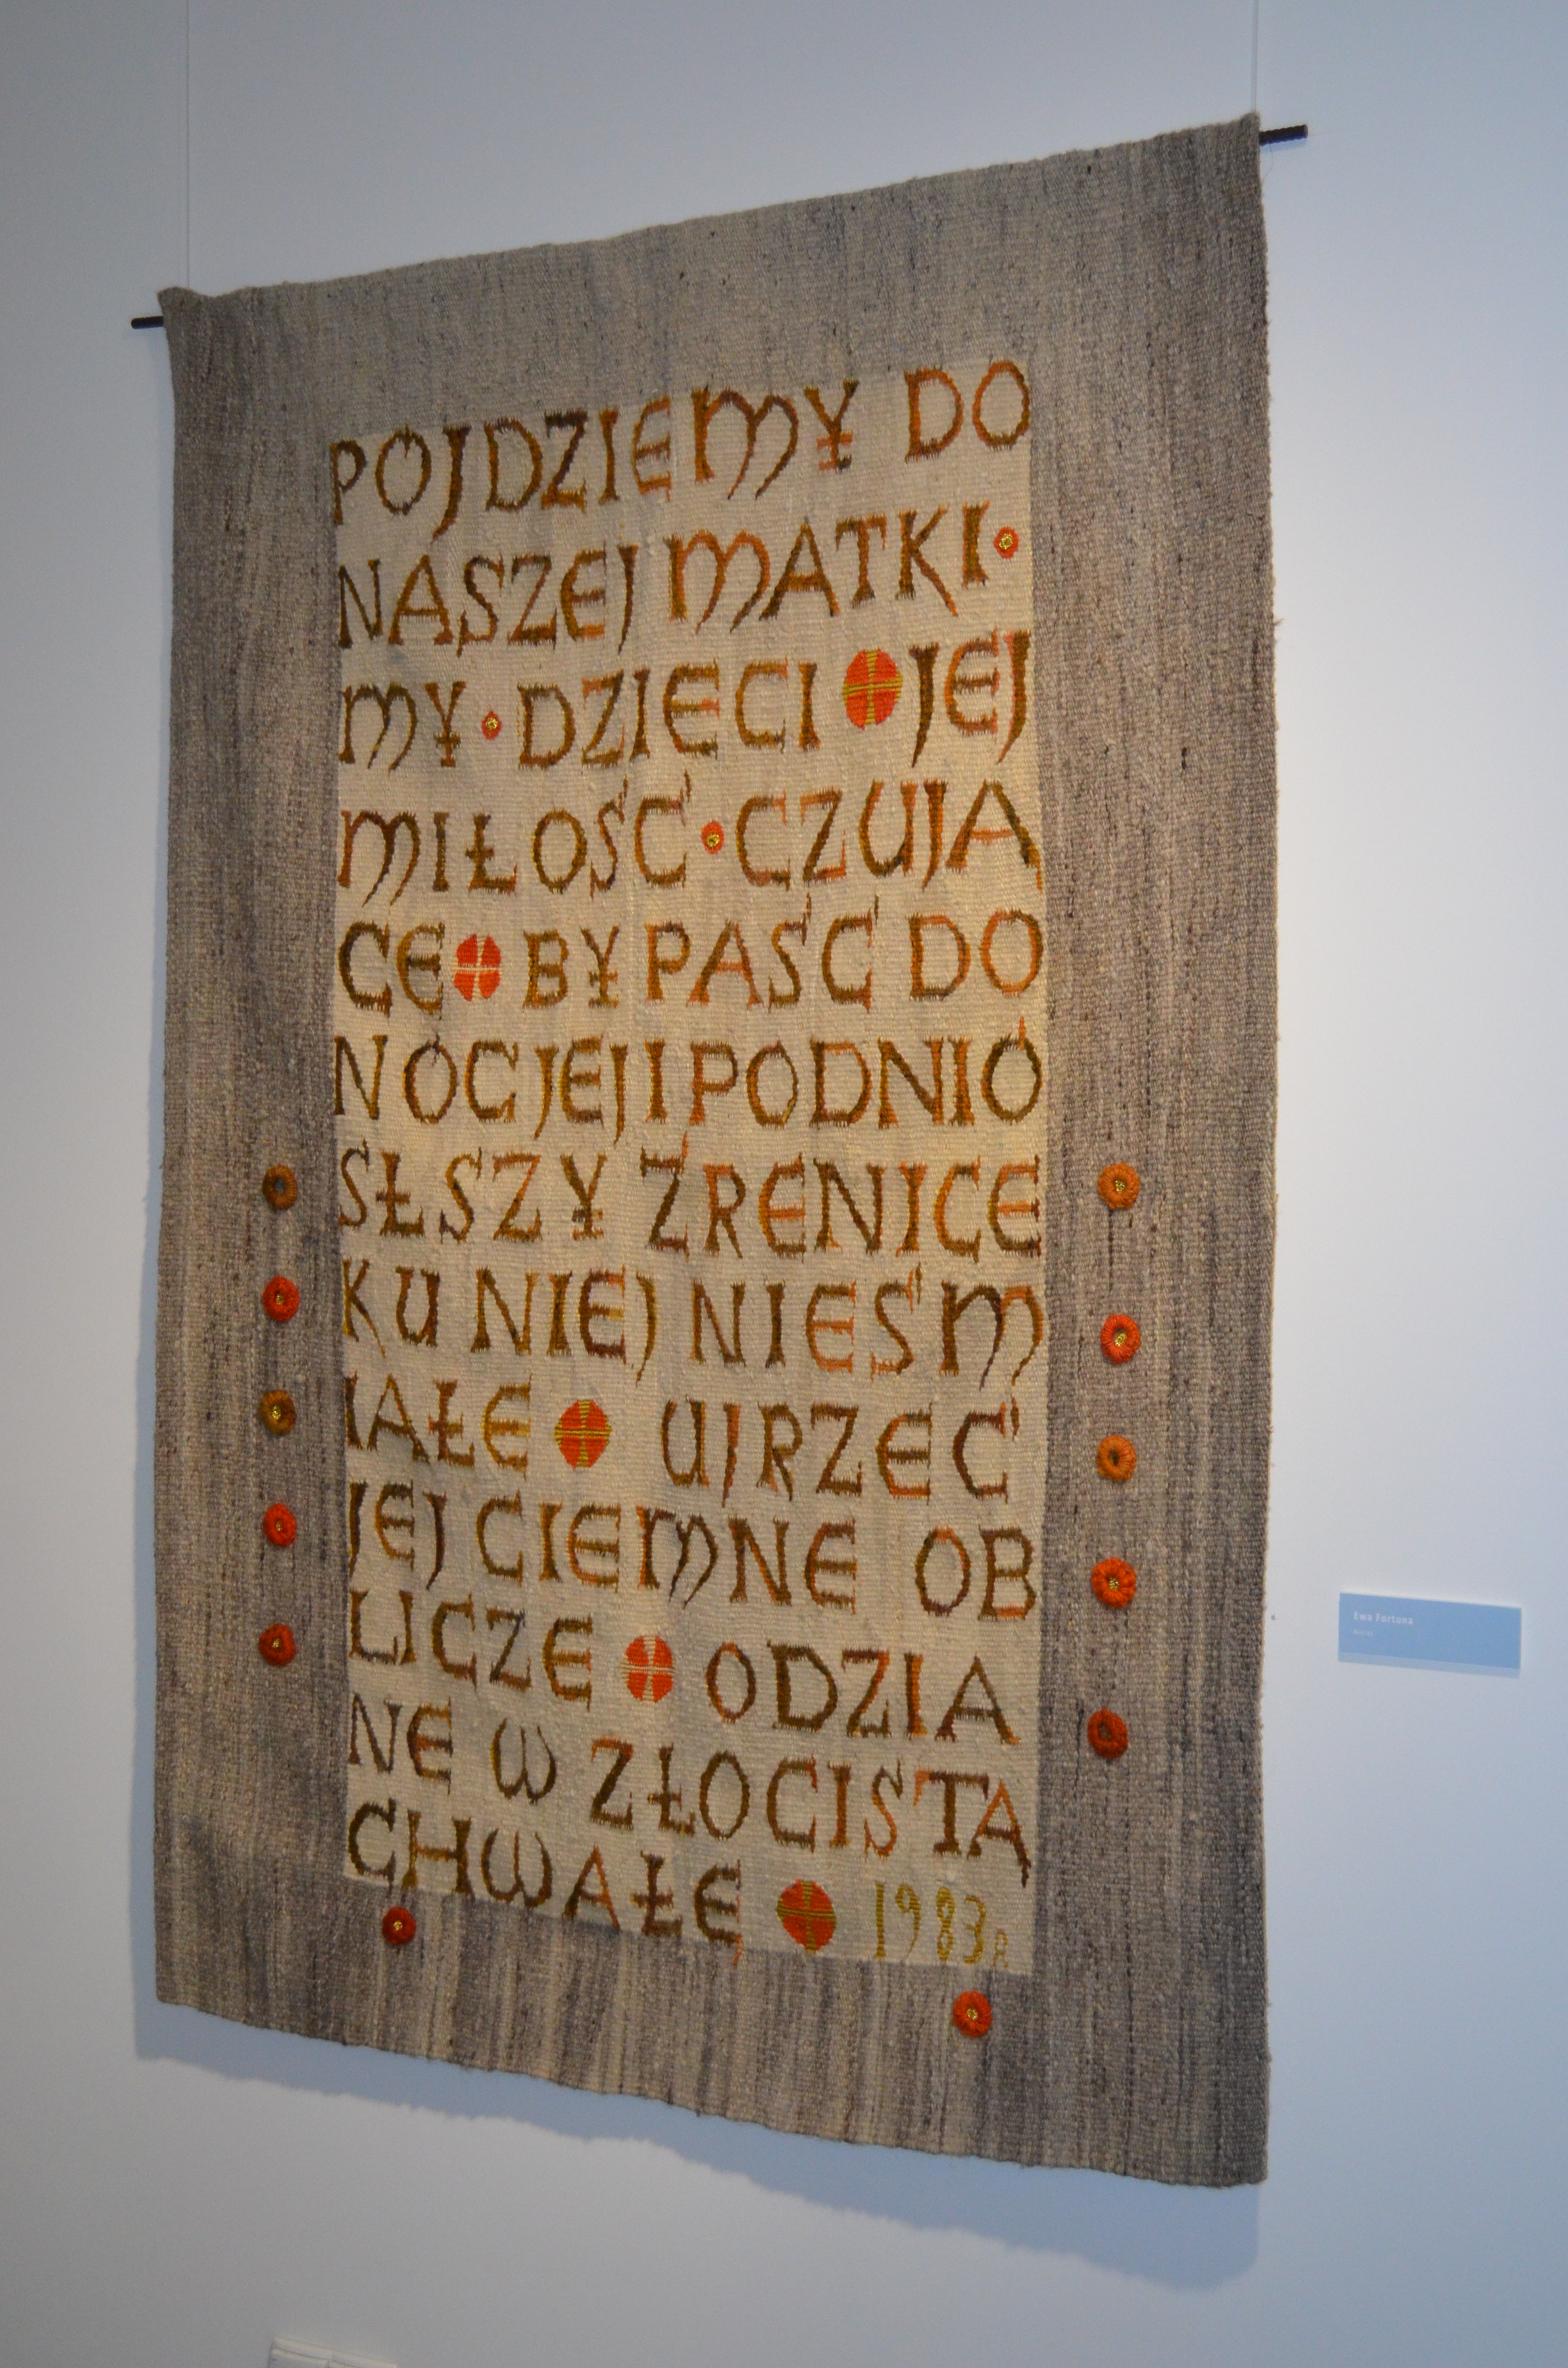 PÓJDZIEMY DO
NASZEJ MATKI·
MY·DZIECI JEJ
MIŁOŚĆ·CZUJĄ
CE BY PAŚĆ DO
NÓG JEJ I PODNIÓ
SŁSZY ŹRENICE
KU NIEJ NIEŚM
IAŁE UJRZEĆ
JEJ CIEMNE OB
LICZE ODZIA
NE W ZŁOCISTĄ
CHWAŁĘ 1983R
Ewa Fortuna